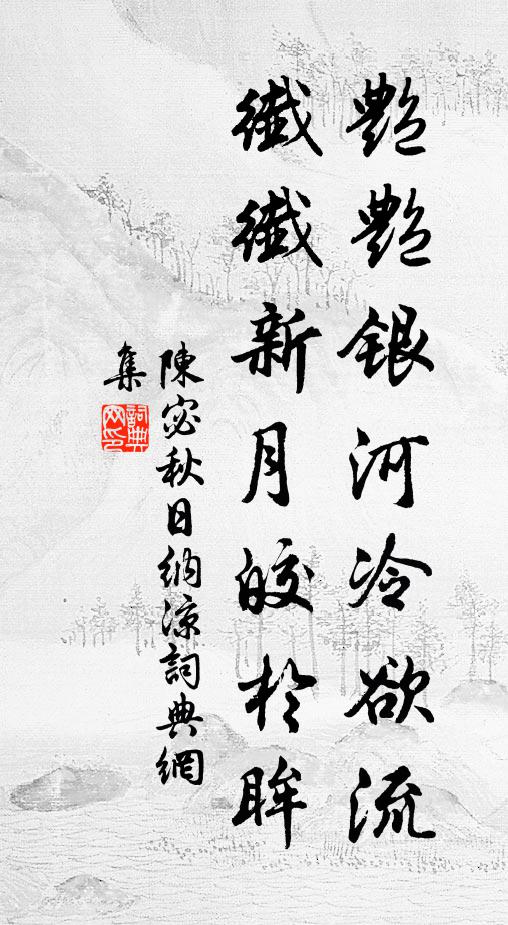 艷艷銀河冷欲流
纖纖新月皎於眸
陳宓秋日納涼詞典網
集
詞典
网印